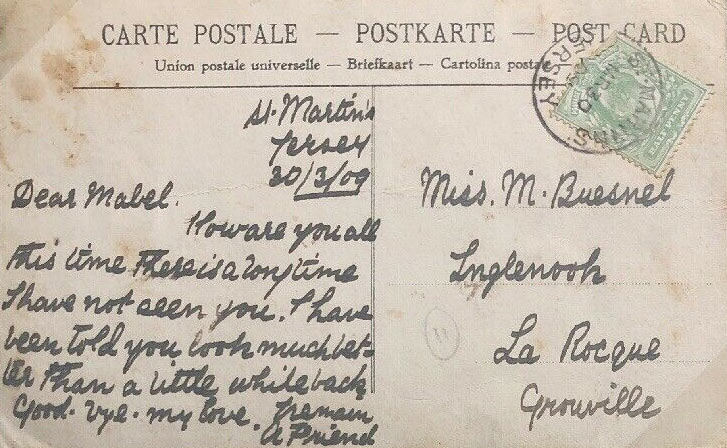 CARTE POSTALE — POSTKARTE — POST CARD
Union postale universelle — Briefkaart — Cartolina postale
ST. MARTINS.
JERSEY
MR 30
HALFPENNY
St. Martin's
Jersey
30/3/09
Dear Mabel.
How are you all
this time there is a long time
I have not seen you. I have
been told you look much bet-
ter than a little while back
Good-bye - my love. I remain
A Friend
Miss. M. Buesnel
Inglenook
La Rocque
Grouville
11